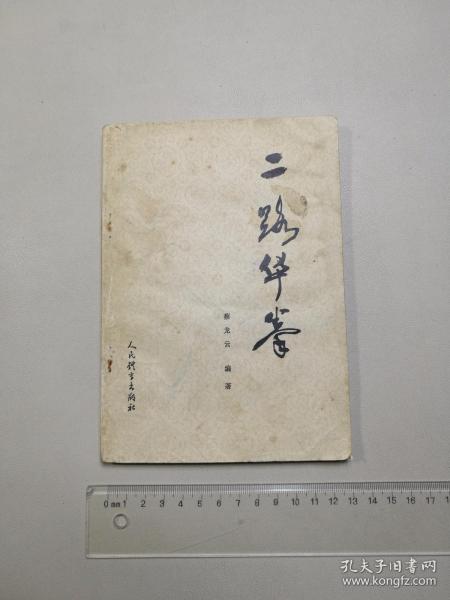 二路华拳
蔡龙云 编著
人民体育出版社
0mm1 2 3 4 5 6 7 8 9 10 11 12 13 14 15 16 17
孔夫子旧书网
www.kongfz.com